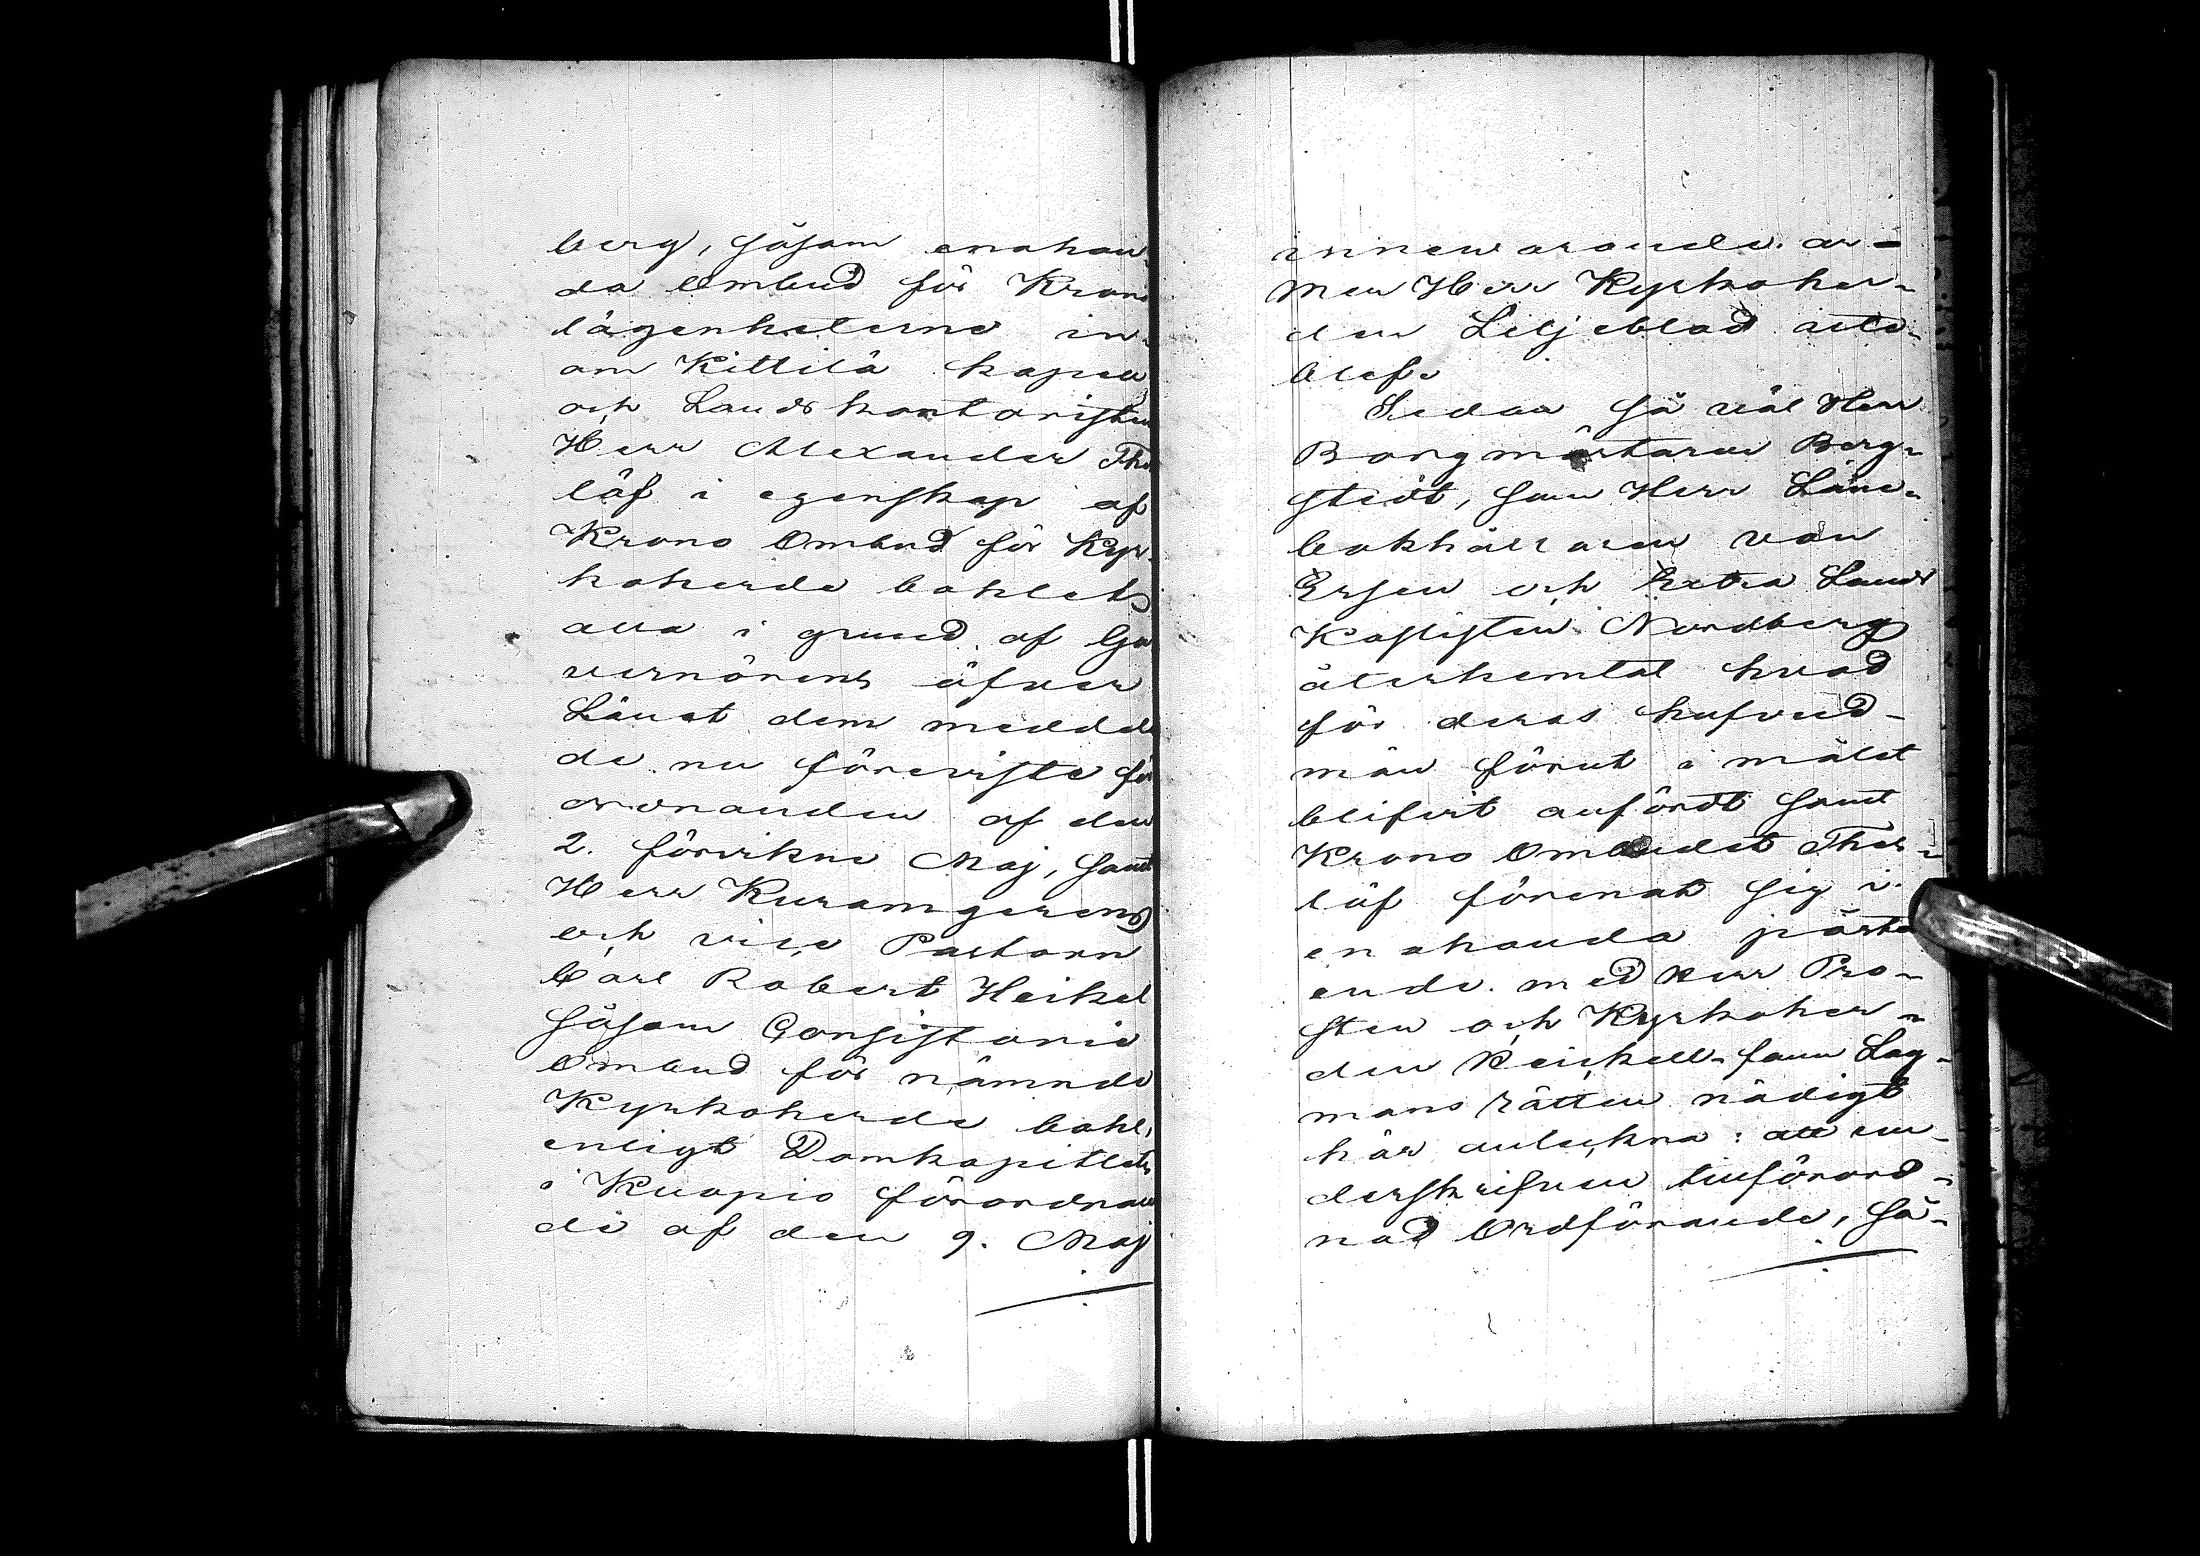 berg, såsom enahan-
da Ombud för Krono
lägenheterne in-
om Kittilä kapell
och Landskontoristen
Herr Alexander Thor
löf i egenskap af
Krono Ombud för Kyr-
koherde bohlets
alla i grund af Gu
vernörens öfver
Länet dem meddel
de nu föreviste för
ordnanden af den
2. förvikne Maj, samt
Herr Kuramgerens
och vice Pastorn
Carl Robert Heikel
såsom Consistorie
Ombud för nämnde
Kyrkoherde bohl,
enligt Domkapitlets
i Kuopio förordnan
de af den 9. Maj
innevarande år -
men Herr Kyrkoher-
den Liljeblad ute-
blef.
Sedan så väl Herr
Borgmästaren Berg-
stedt, som Herr Läns-
bokhållaren von
Essen och Extra Lands
Kasisten Nordberg
återhemtat hvad
för deras hufvud-
män förut i målet
blifvit anfördt samt
Krono Ombudet Thor-
löf förenat sig i
enahanda påstå
ende med Herr Pro-
sten och Kyrkoher-
den Heickell - fann Lag-
mans rätten nödigt
här anteckna: att un-
derskrifven tillförord-
nad Ordförande, så-